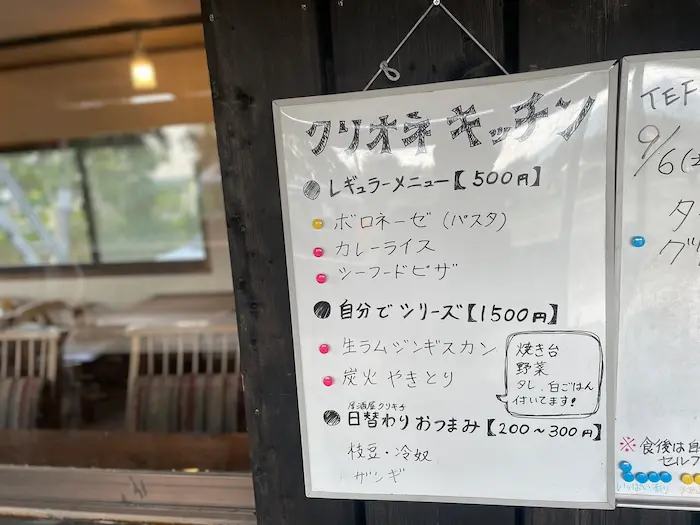 クリオネキッチン
● レギュラーメニュー【500円】
ボロネーゼ (パスタ)
カレーライス
シーフードピザ
● 自分でシリーズ【1500円】
生ラムジンギスカン
炭火 やきとり
焼き台
野菜
タレ、白ごはん
付いてます!
居酒屋クリキチ
● 日替わりおつまみ【200〜300円】
枝豆・冷奴
ザンギ
TEF
9/6(土
タ
グリ
※食後は自
セルフ